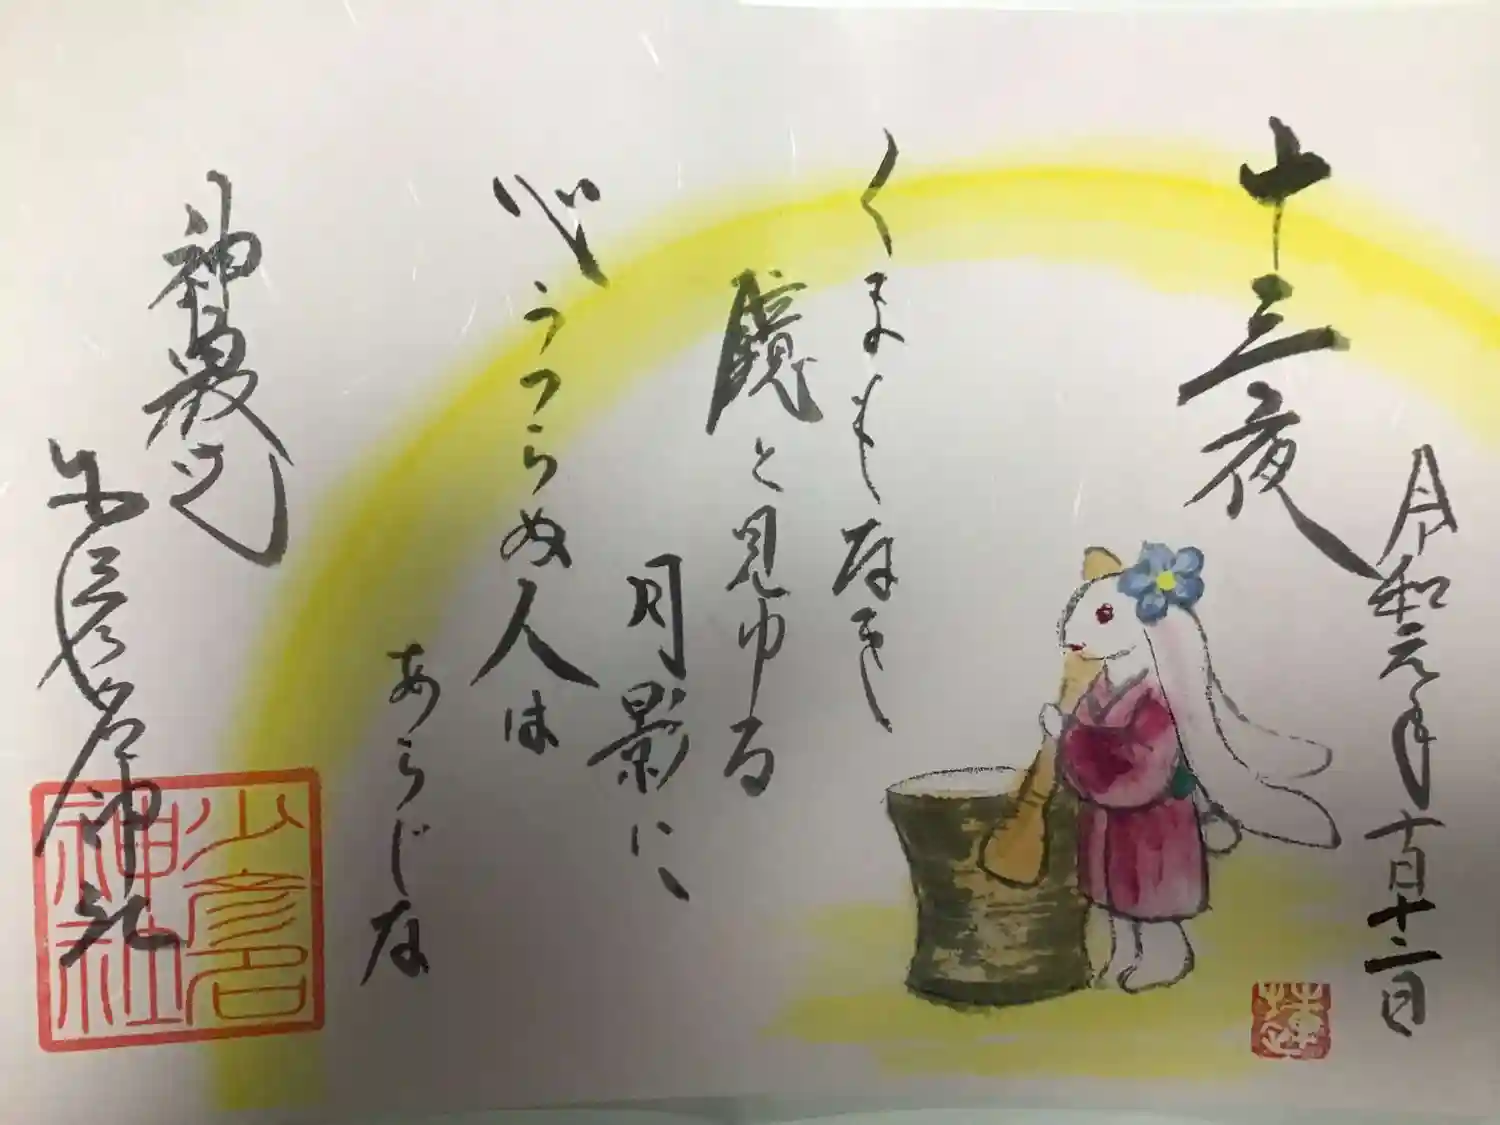 令和元年十月十二日
十三夜
くまもなき
鏡と見ゆる
月影に
心うつらぬ人は
あらじな
少彦名神社
少彦名
神社